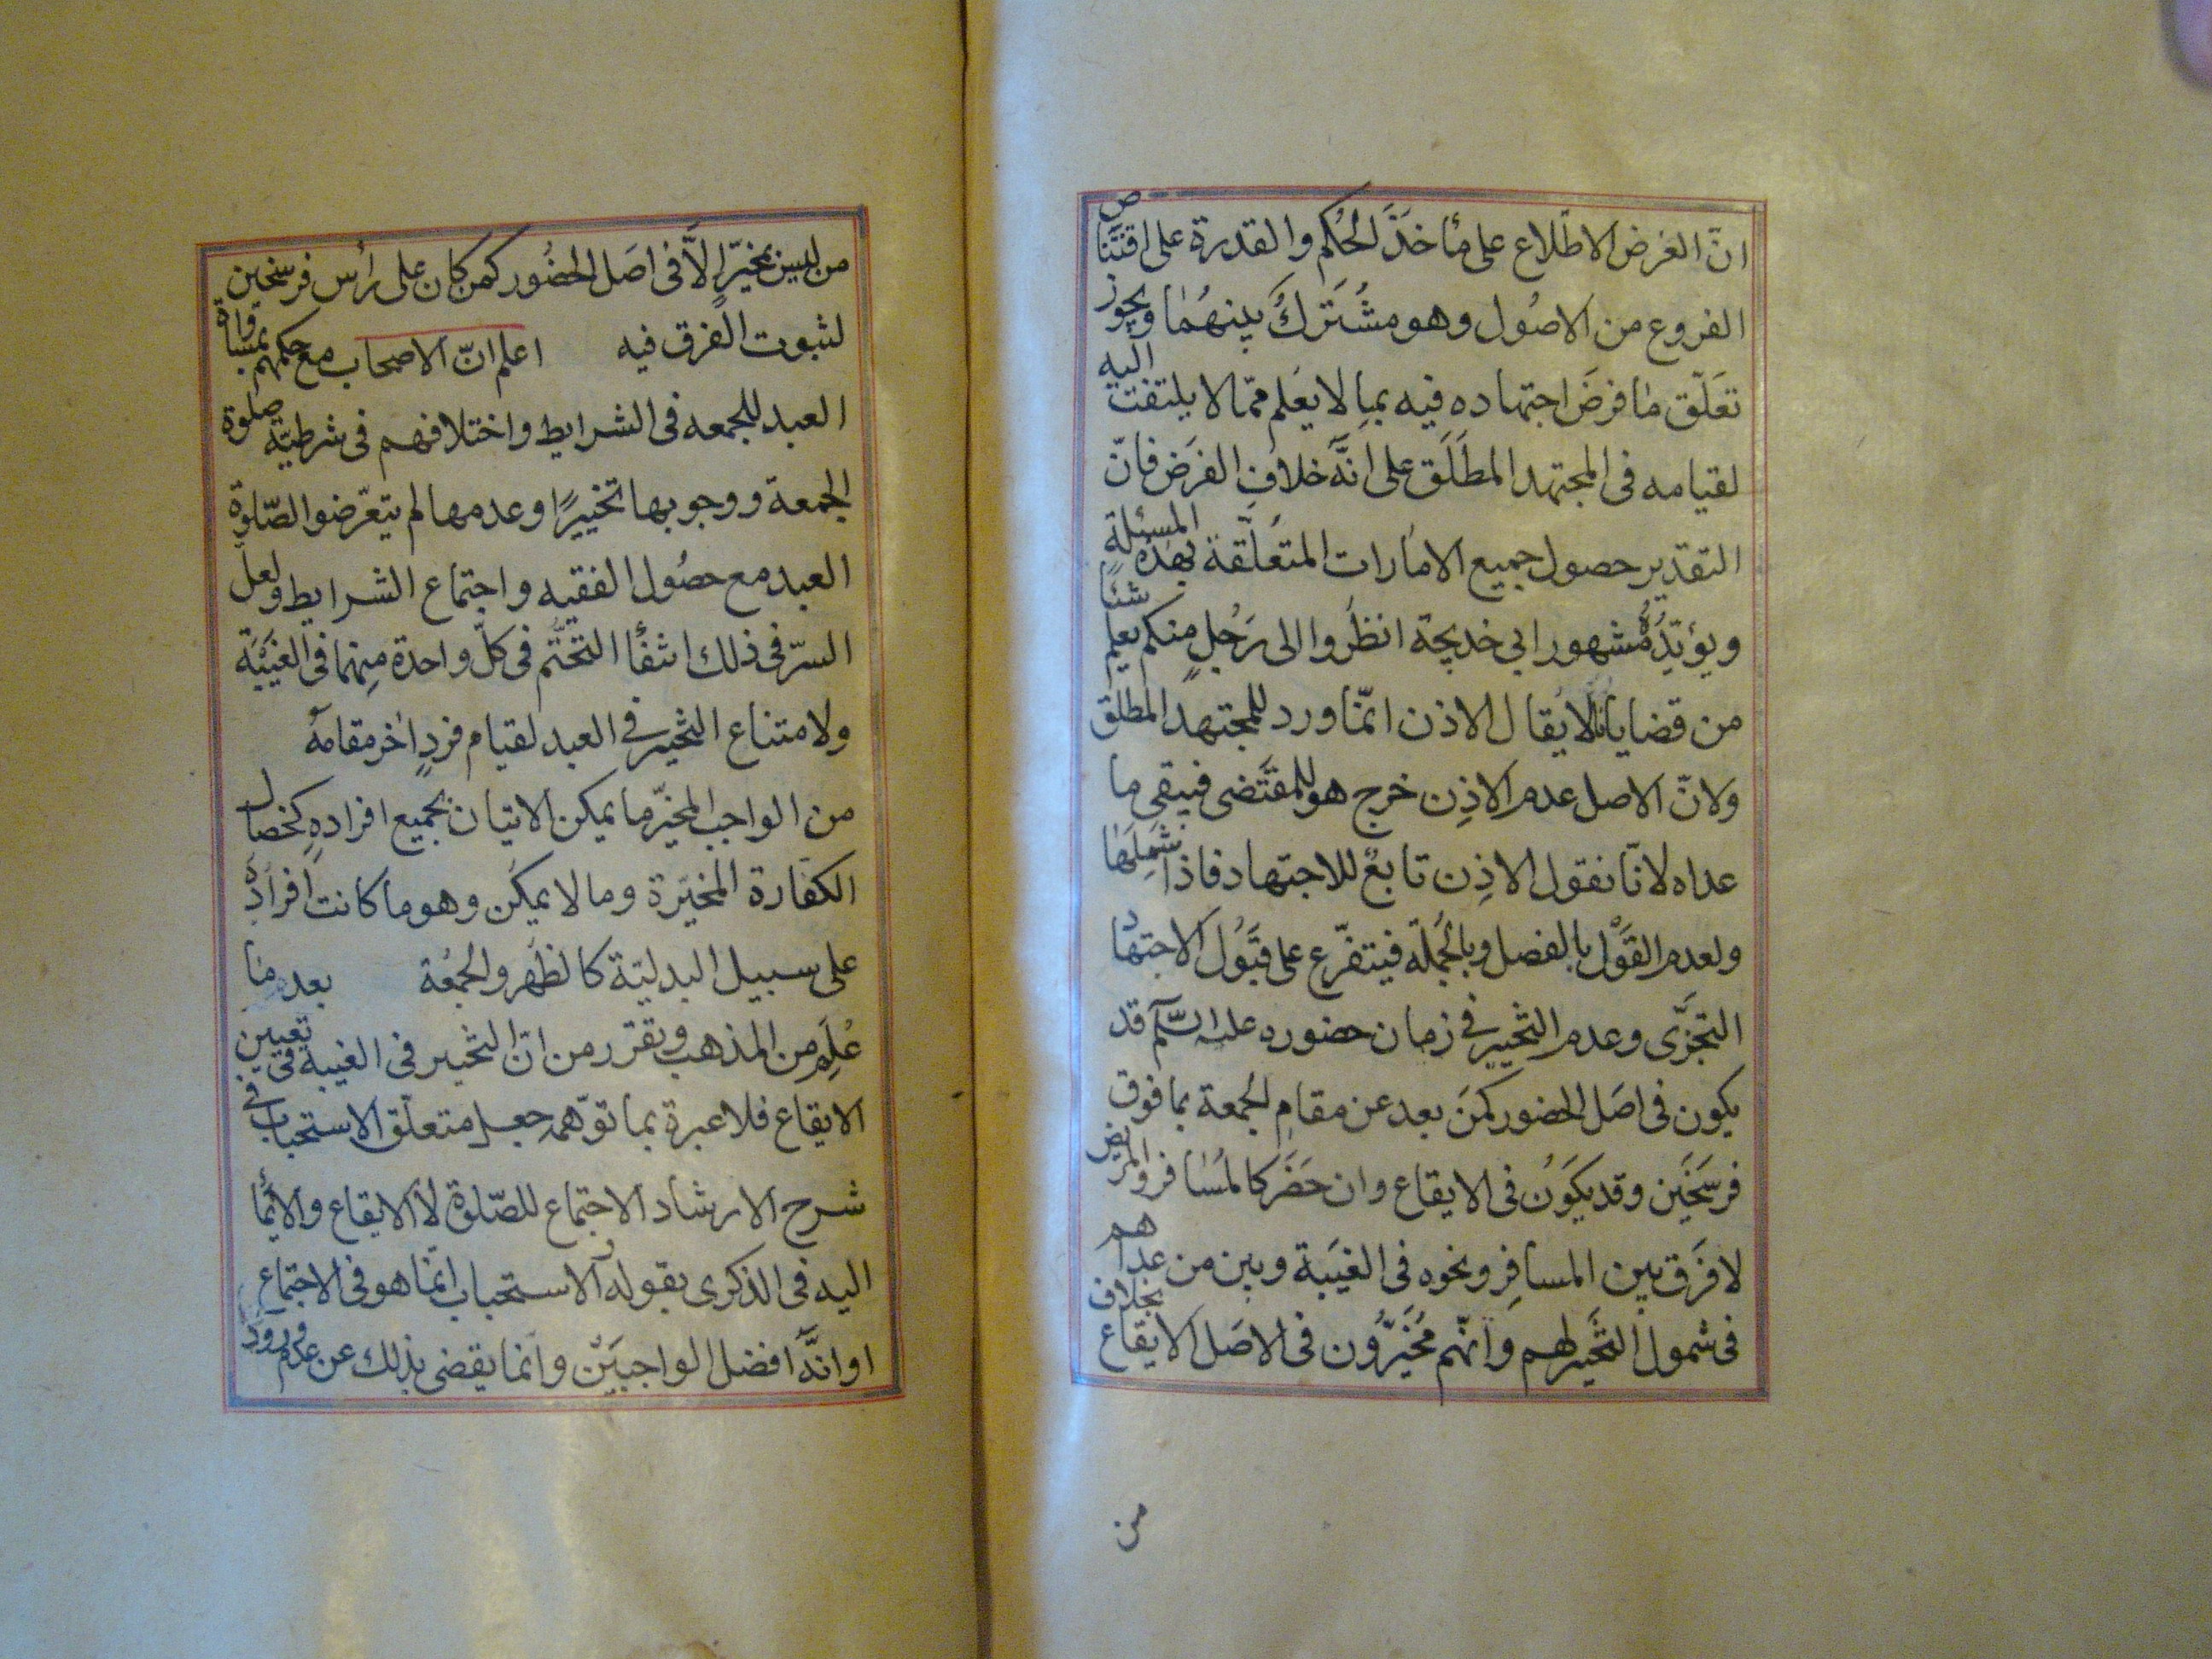 انّ الغرض الاطّلاع على مأخذ الحُكم والقدرة على اقتناص
الفروع من الاصُول وهو مشُترَكٌ بينهُما ويجوز
تعَلّق ما فرضَ اجتهاده فيه بما لا يعَلم ممّا لا يلتفت اليه
لقيامه فى المجتهد المطلَق على انَّه خلاف الفرَض فانّ
التقدير حصول جميع الامارات المتعلّقة بهذه المسئلة
ويؤيّدُهُ مشهور ابي خديجة انظُروا الى رَجُلٍ منكم يعلم شئًا
من قضايانا لا يُقال الاذن انّما ورد للمجتهد المطلق
ولانّ الاصل عدم الاذِن خرج هو للمقتَضى فيبقى ما
عداه لانّا نقول الاذِن تابعٌ للاجتهاد فاذا شملها
ولعدم القَوْل بالفصل وبالجُملة فيتفرّع على قبَوُل الاجتهاد
التجزّى وعدم التخيير فى زمان حضوره عليه السّلم قد
يكون فى اصَل الحضور كمنَ بعد عن مقامِ الجمعة بما فوق
فرسَخَين وقد يكوَنُ فى الايقاع وان حَضَر كالمسُافر والمريض
لا فرَق بين المسافِر ونحوه فى الغيَبة وبين من عداهم
فى شمول التخَيير لهم وانّهم مُخيَّرُون فى الاصَل الايقاع بخلاف
من
من ليس مخيّرًا لاَّ فى اصَل الحضُور كمن كان على رأس فرسخين
لثبوت الفرق فيه اعلم انّ الاصحاب مع حكمهم بمساواة
العيد للجمعه فى الشرايط واختلافهم فى شرطيّة صلوة
الجمعة ووجوبها تخييرًا وعدمها لم يتعّرضوا لصّلوة
العيد مع حصُول الفقيه واجتماع الشرايط ولعلّ
السّر فى ذلك انتفٲ التحتُّم فى كلّ واحدة مِنهما فى الغيَبْة
ولامتناع التخيير في العيد لقيام فردٍ اٰخر مقامه
من الواجب المخيّر ما يمكن الاتيان بجميع افراده كخصال
الكفارة المخيَرة وما لا يمكن وهو ما كانت افراده
على سبيل البدليّة كالظهر والجمُعة بعد ما
عُلِم من المذهب وتقرّر من انّ التخيير فى الغيبة فى تعيين
الايقاع فلا عبرة بما توّهم جعل متعلّق الاستحباب فى
شرح الارشاد الاجتماع للصّلوة لا الايقاع والايمٲ
اليه فى الذكرى بقوله الاستحباب انّما هو فى الاجتماع
او انّهَ افضل الواجبَيَن وانما يقضى بذلك عن عدم ورود